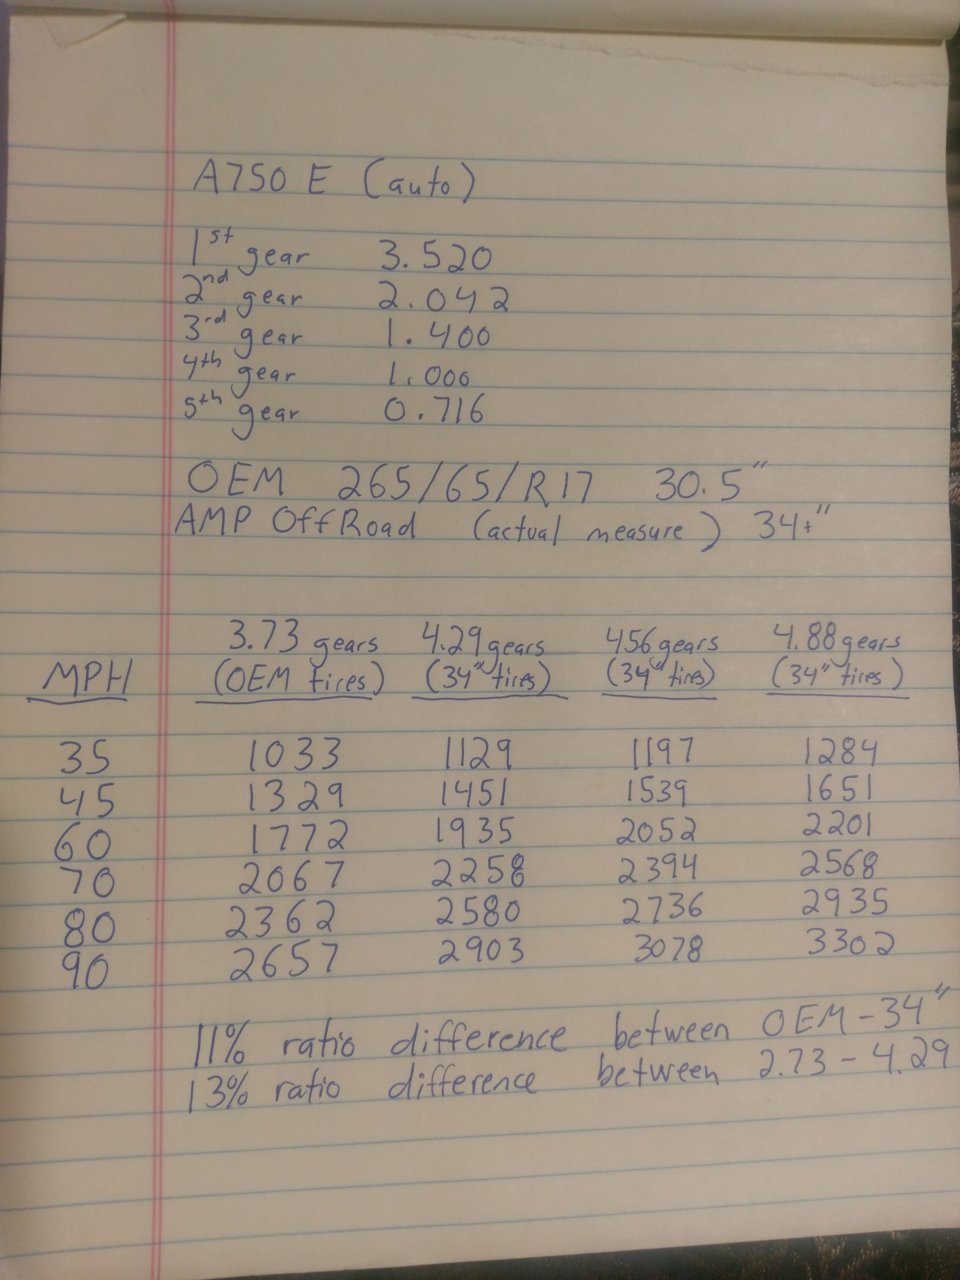 A750 E (auto)
1st gear 3.520
2nd gear 2.042
3rd gear 1.400
4th gear 1.000
5th gear 0.716
OEM 265/65/R17 30.5"
AMP OffRoad (actual measure) 34+"
3.73 gears 4.29 gears 456 gears 4.88 gears
MPH (OEM tires) (34" tires) (34" tires) (34" tires)
35 1033 1129 1197 1284
45 1329 1451 1539 1651
60 1772 1935 2052 2201
70 2067 2258 2394 2568
80 2362 2580 2736 2935
90 2657 2903 3078 3302
11% ratio difference between OEM - 34"
13% ratio difference between 2.73 - 4.29